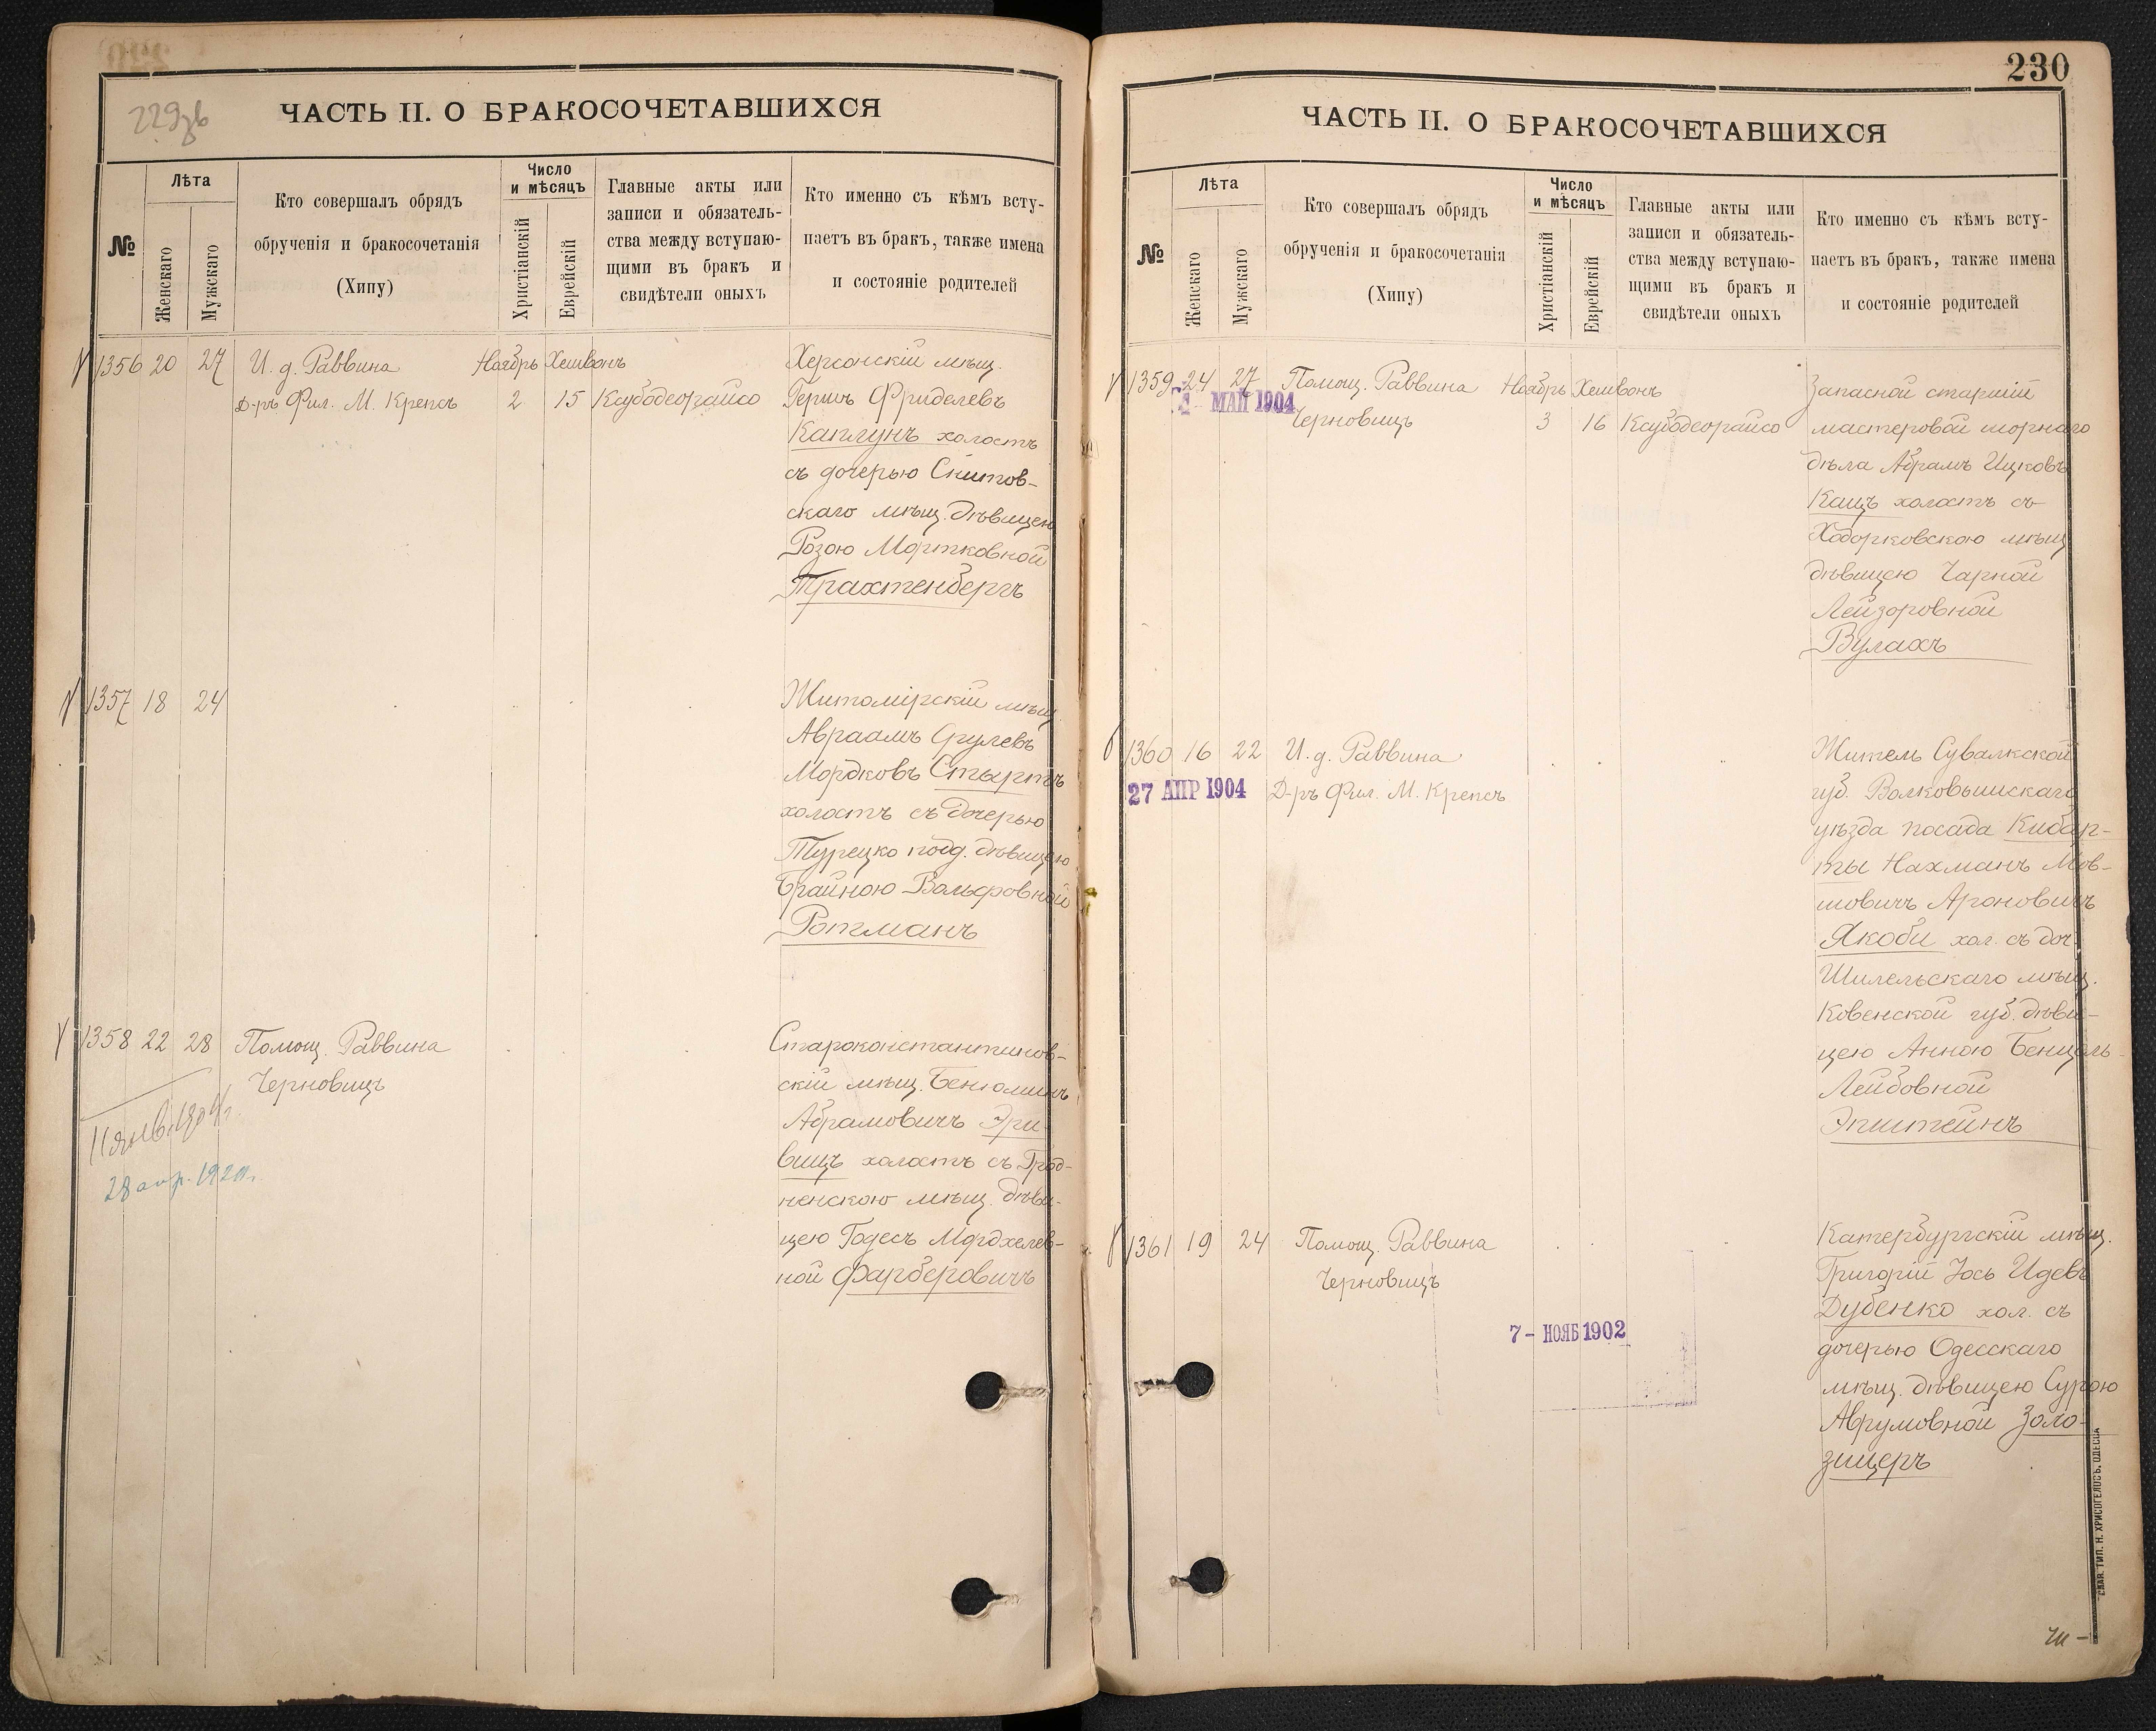 229зв
ЧАСТЬ II. О БРАКОСОЧЕТАВШИХСЯ
№
Лѣта
Женскаго
Мужскаго
Кто совершалъ обрядъ
обрученія и бракосочетанія
(Хипу)
Число
и мѣсяцъ
Христіанскій
Еврейскій
Главные акты или
записи и обязатель-
ства между вступаю-
щими въ бракъ и
свидѣтели оныхъ
Кто именно съ кѣмъ всту-
паетъ въ бракъ, также имена
и состояніе родителей
1356 20 27 И. д. Раввина Ноябрь Хешвонъ Херсонскій мѣщ.
Д-ръ Фил. М. Крепсъ 2 15 Ксубодеорайсо Гершъ Фриделевъ
Каплунъ холостъ
съ дочерью Сквитов-
скаго мѣщ. дѣвицею
Розою Мортковной
Трахтенбергъ
1357 18 24 Житомірскій мѣщ.
Авраамъ Срулевъ
Мордковъ Стыртъ
холостъ съ дочерью
Турецко подд. дѣвицею
Брайною Вольфовной
Ротманъ
1358 22 28 Помощ. Раввина Староконстантинов-
Черновицъ скій мѣщ. Бенюминъ
Абрамовичъ Эри-
11 янв. 1904 г.
вицъ холостъ съ Грод-
28 апр. 192
ненскою мѣщ. дѣви-
цею Годесъ Мордхелев-
ной Фарберовичъ
230
ЧАСТЬ II. О БРАКОСОЧЕТАВШИХСЯ
№
Лѣта
Женскаго
Мужскаго
Кто совершалъ обрядъ
обрученія и бракосочетанія
(Хипу)
Число
и мѣсяцъ
Христіанскій
Еврейскій
Главные акты или
записи и обязатель-
ства между вступаю-
щими въ бракъ и
свидѣтели оныхъ
Кто именно съ кѣмъ всту-
паетъ въ бракъ, также имена
и состояніе родителей
1359 24 27 Помощ. Раввина Ноябрь Хешвонъ Запасной старшій
МАЙ 1904
Черновицъ 3 16 Ксубодеорайсо мастеровой шорнаго
дѣла Абрамъ Ицковъ
Кацъ холостъ съ
Ходорковскою мѣщ.
дѣвицею Чарной
Лейзоровной
Вулахъ
1360 16 22 И. д. Раввина Житель Сувалкской
27 АПР 1904 Д-ръ Фил. М. Крепсъ губ. Волковышскаго
уѣзда посада Кибар-
ты Нахманъ Мов-
шовичъ Ароновичъ
Якоби хол. съ доч.
Шилельскаго мѣщ.
Ковенской губ. дѣви-
цею Анною Бенцель-
Лейбовной
Эпштейнъ
1361 19 24 Помощ. Раввина Катербургскій мѣщ.
Черновицъ Григорій Іось Идевъ
Дубенко хол. съ
7 - НОЯБ 1902
дочерью Одесскаго
мѣщ. дѣвицею Сурою
Аврумовной Золо-
зицеръ
СЛАВ. ТИП. Н. ХРИСОГЕЛОСЪ. ОДЕССА